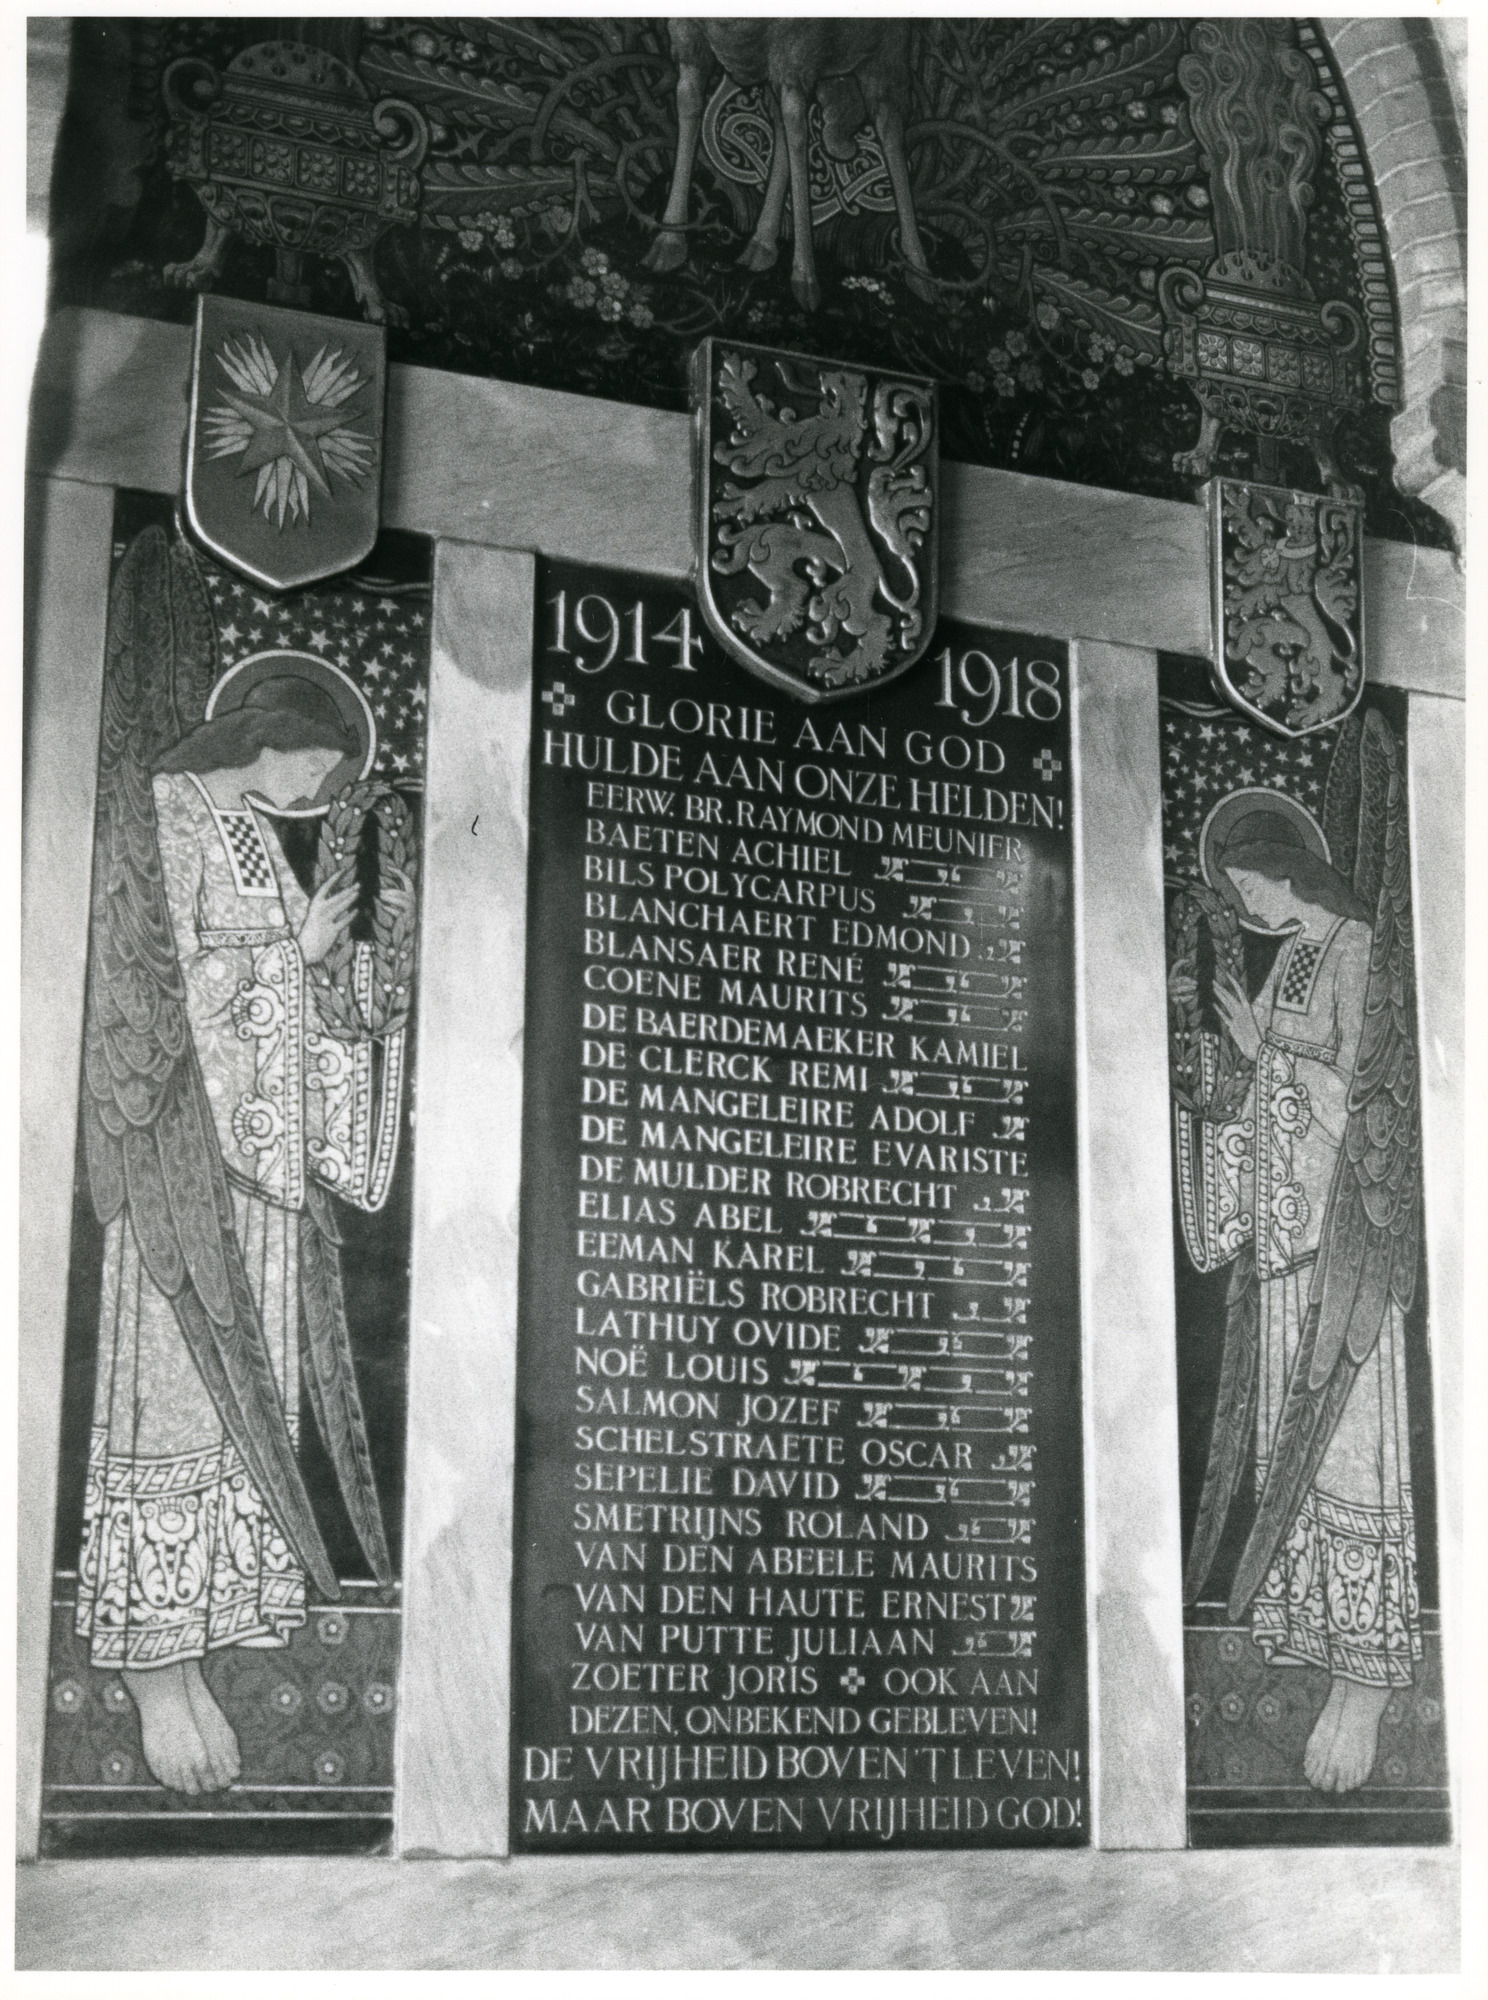 1914 1918
GLORIE AAN GOD
HULDE AAN ONZE HELDEN!
EERW. BR. RAYMOND MEUNIER
BAETEN ACHIEL
BILS POLYCARPUS
BLANCHAERT EDMOND
BLANSAER RENÉ
COENE MAURITS
DE BAERDEMAEKER KAMIEL
DE CLERCK REMI
DE MANGELEIRE ADOLF
DE MANGELEIRE EVARISTE
DE MULDER ROBRECHT
ELIAS ABEL
EEMAN KAREL
GABRIËLS ROBRECHT
LATHUY OVIDE
NOË LOUIS
SALMON JOZEF
SCHELSTRAETE OSCAR
SEPELIE DAVID
SMETRIJNS ROLAND
VAN DEN ABEELE MAURITS
VAN DEN HAUTE ERNEST
VAN PUTTE JULIAAN
ZOETER JORIS ✤ OOK AAN
DEZEN, ONBEKEND GEBLEVEN!
DE VRIJHEID BOVEN 'T LEVEN!
MAAR BOVEN VRIJHEID GOD!